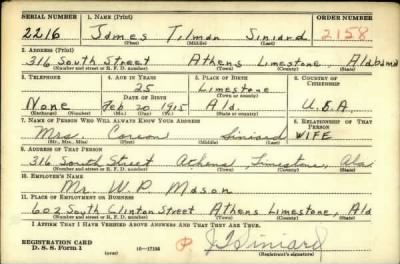 SERIAL NUMBER 1. NAME (Print) ORDER NUMBER
2216 James Tilman Siniard 2158
(First) (Middle) (Last)
2. ADDRESS (Print)
316 South Street Athens Limestone, Alabama
(Number and street or R. F. D. number) (Town) (County) (State)
3. TELEPHONE 4. AGE IN YEARS 5. PLACE OF BIRTH 6. COUNTRY OF CITIZENSHIP
25 Limestone
DATE OF BIRTH (Town or county)
None Feb 20 1915 Ala. U.S.A.
(Exchange) (Number) (Mo.) (Day) (Yr.) (State or country)
7. NAME OF PERSON WHO WILL ALWAYS KNOW YOUR ADDRESS 8. RELATIONSHIP OF THAT PERSON
Mrs. Siniard WIFE
(Mr., Mrs., Miss) (First) (Middle) (Last)
9. ADDRESS OF THAT PERSON
316 South Street Athens, Limestone, Ala
(Number and street or R. F. D. number) (Town) (County) (State)
10. EMPLOYER'S NAME
Mr. W. P. Mason
11. PLACE OF EMPLOYMENT OR BUSINESS
602 South Clinton Street Athens Limestone, Ala
(Number and street or R. F. D. number) (Town) (County) (State)
I AFFIRM THAT I HAVE VERIFIED ABOVE ANSWERS AND THAT THEY ARE TRUE.
REGISTRATION CARD
D. S. S. Form 1 (over) 16—17105 J T Siniard
(Registrant's signature)